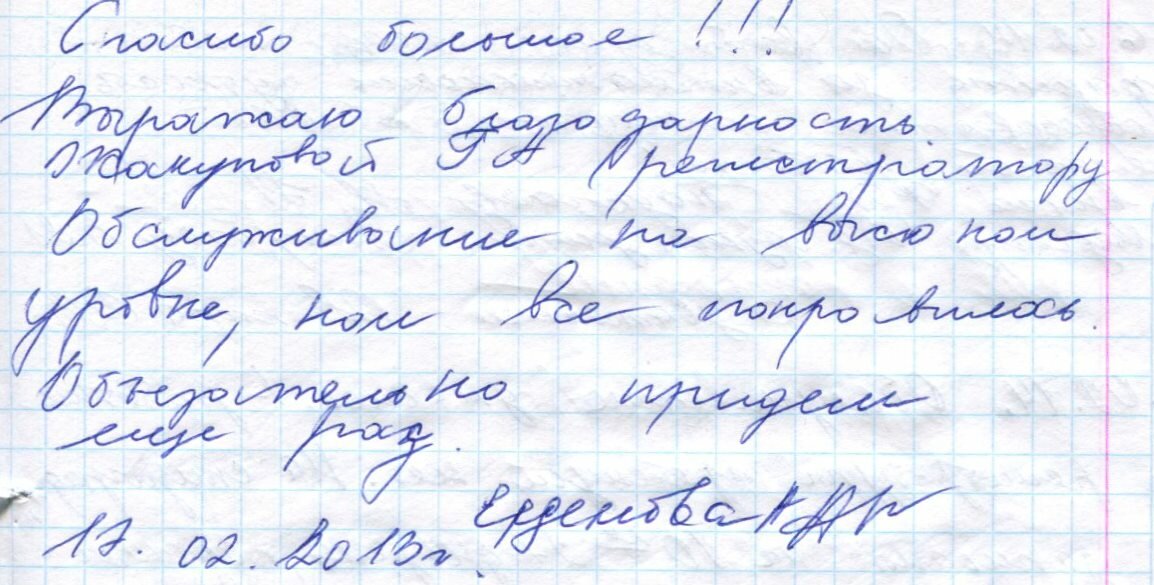 Спасибо большое!!!
Выражаю благодарность
Жакуповой Г А регистратору
Обслуживание на высоком
уровне, нам все понравилось.
Обязательно придем
еще раз.
Ерденова
17. 02. 2013г.